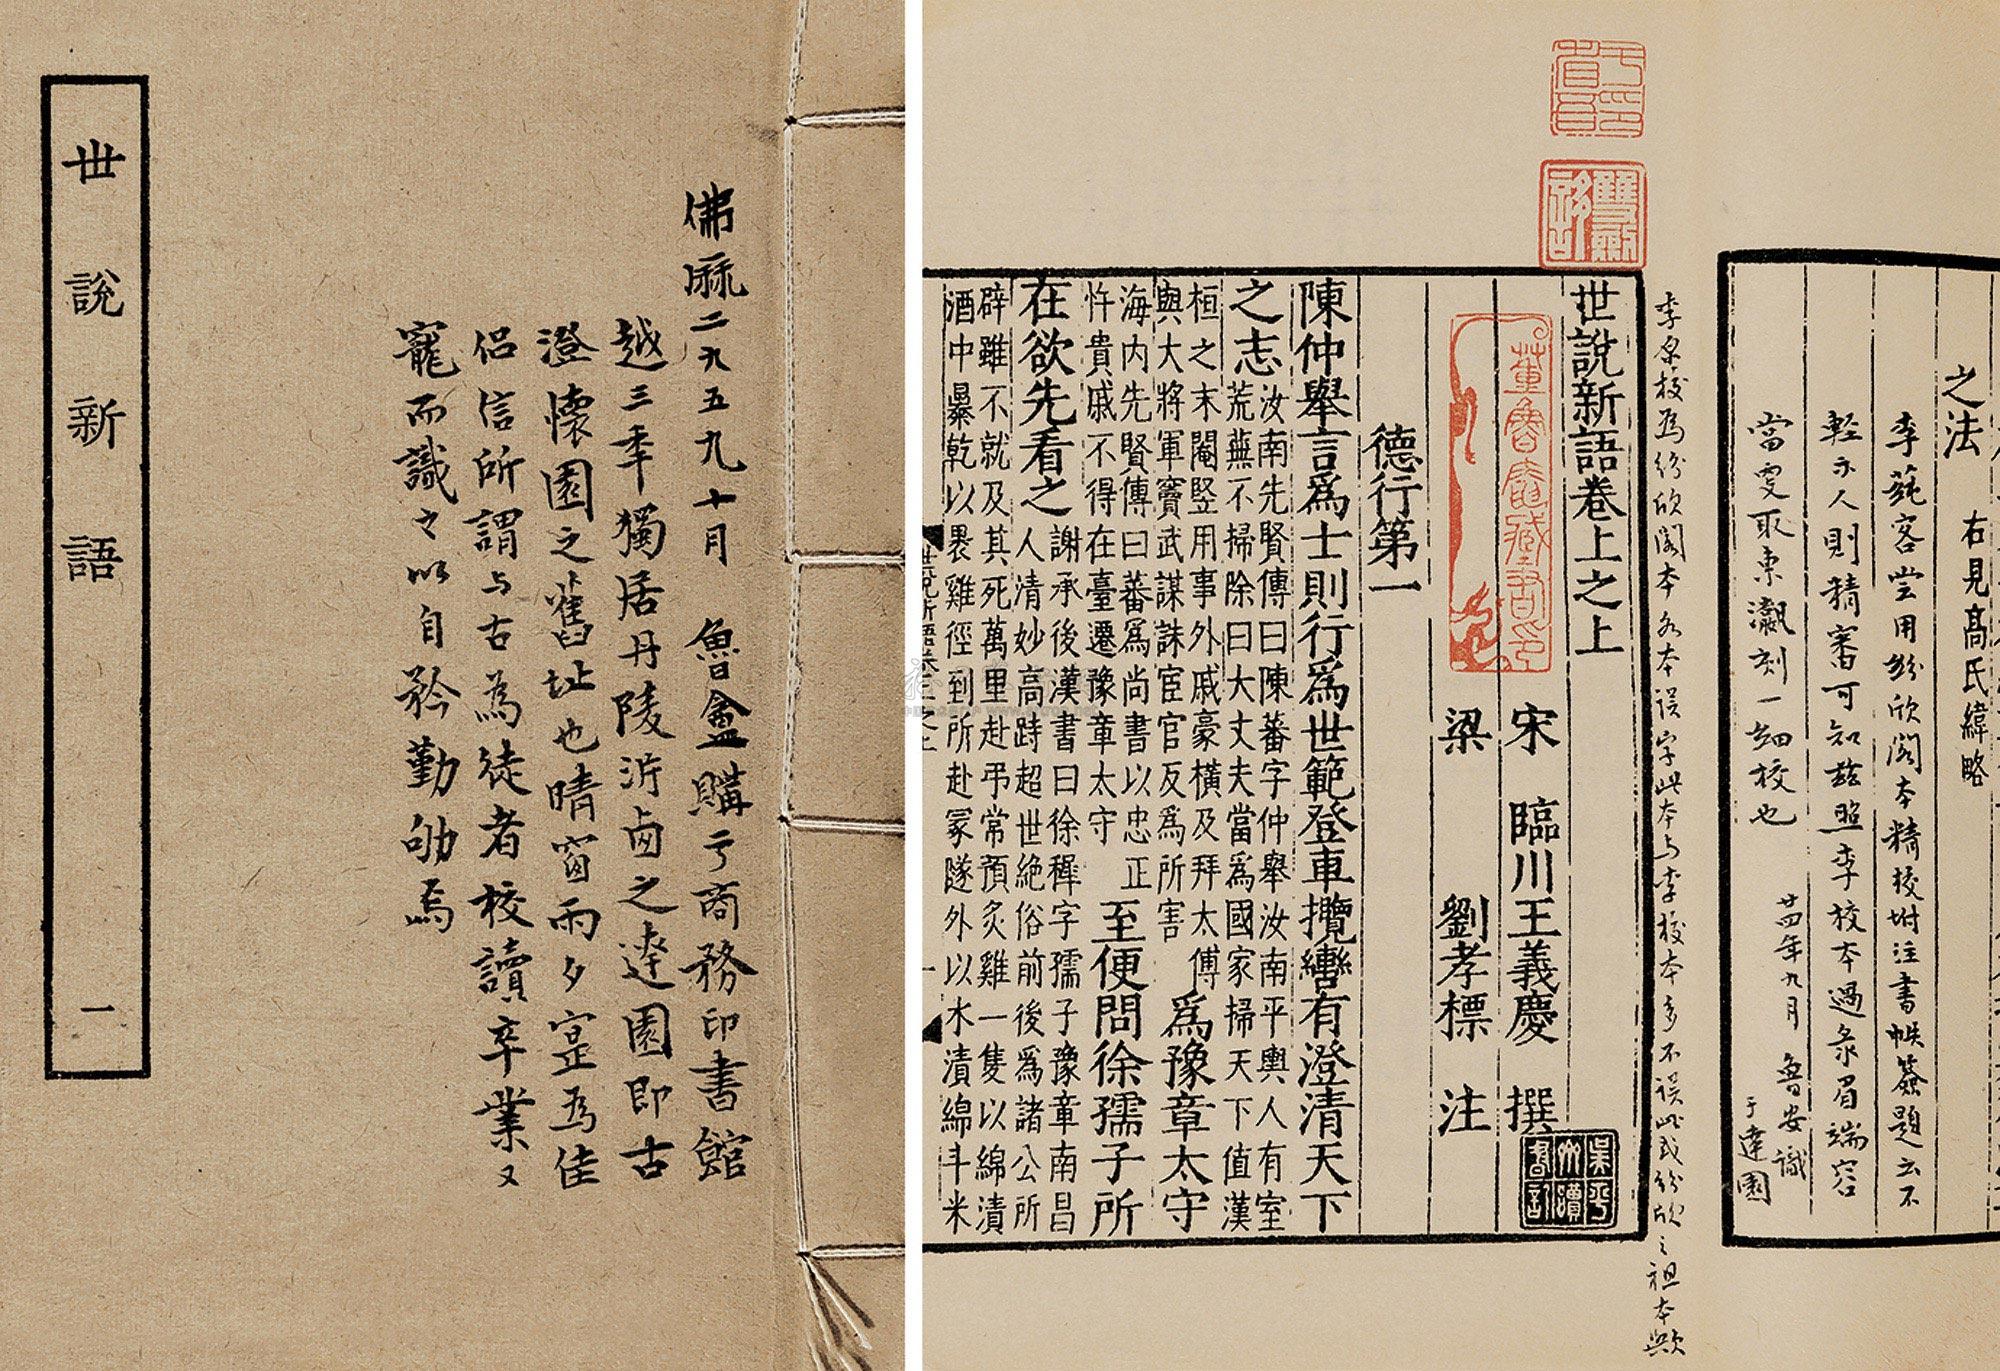 世說新語 一
佛厤二九五九十月 魯盦購于商務印書館
越三年獨居丹陵沜鹵之達園即古
澄懷園之舊址也晴窗雨夕寔為佳
侶信所謂与古為徒者校讀卒業又
寵而識之以自矜勤劬焉
之法 右見高氏緯略
李蒓客嘗用紛欣閣本精校坿注書帙簽題云不
輕示人則精審可知茲照李校本過彔眉端容
當更取東瀛刻一細校也
廿四年九月 魯安識
于達園
李原校為紛欣閣本 各本误字此本与李校本多不误此或紛欣之祖本歟
世說新語卷上之上
宋 臨川王義慶 撰
梁 劉孝標 注
德行第一
陳仲舉言爲士則行爲世範登車攬轡有澄清天下
之志汝南先賢傳曰陳蕃字仲舉汝南平輿人有室
荒蕪不掃除曰大丈夫當爲國家掃天下值漢
桓之末閹豎用事外戚豪橫及拜太傅
與大將軍竇武謀誅宦官反爲所害 爲豫章太守
海内先賢傳曰蕃爲尚書以忠正
忤貴戚不得在臺遷豫章太守 至便問徐孺子所
在欲先看之謝承後漢書曰徐穉字孺子豫章南昌
人清妙高跱超世絶俗前後爲諸公所
辟雖不就及其死萬里赴弔常預炙雞一隻以綿漬
酒中曝乾以裹雞徑到所赴冢隧外以水漬綿斗米
世說新語卷上之上 一
董魯庵藏書印
雙劍誃